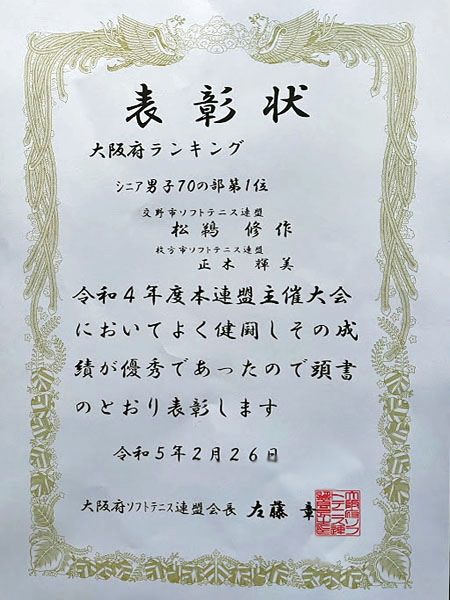 表彰状
大阪府ランキング
シニア男子70の部第1位
交野市ソフトテニス連盟
松鵜 修作
枚方市ソフトテニス連盟
正木 輝美
令和4年度本連盟主催大会
においてよく健闘しその成
績が優秀であったので頭書
のとおり表彰します
令和5年2月26日
大阪府ソフトテニス連盟会長 左藤 章